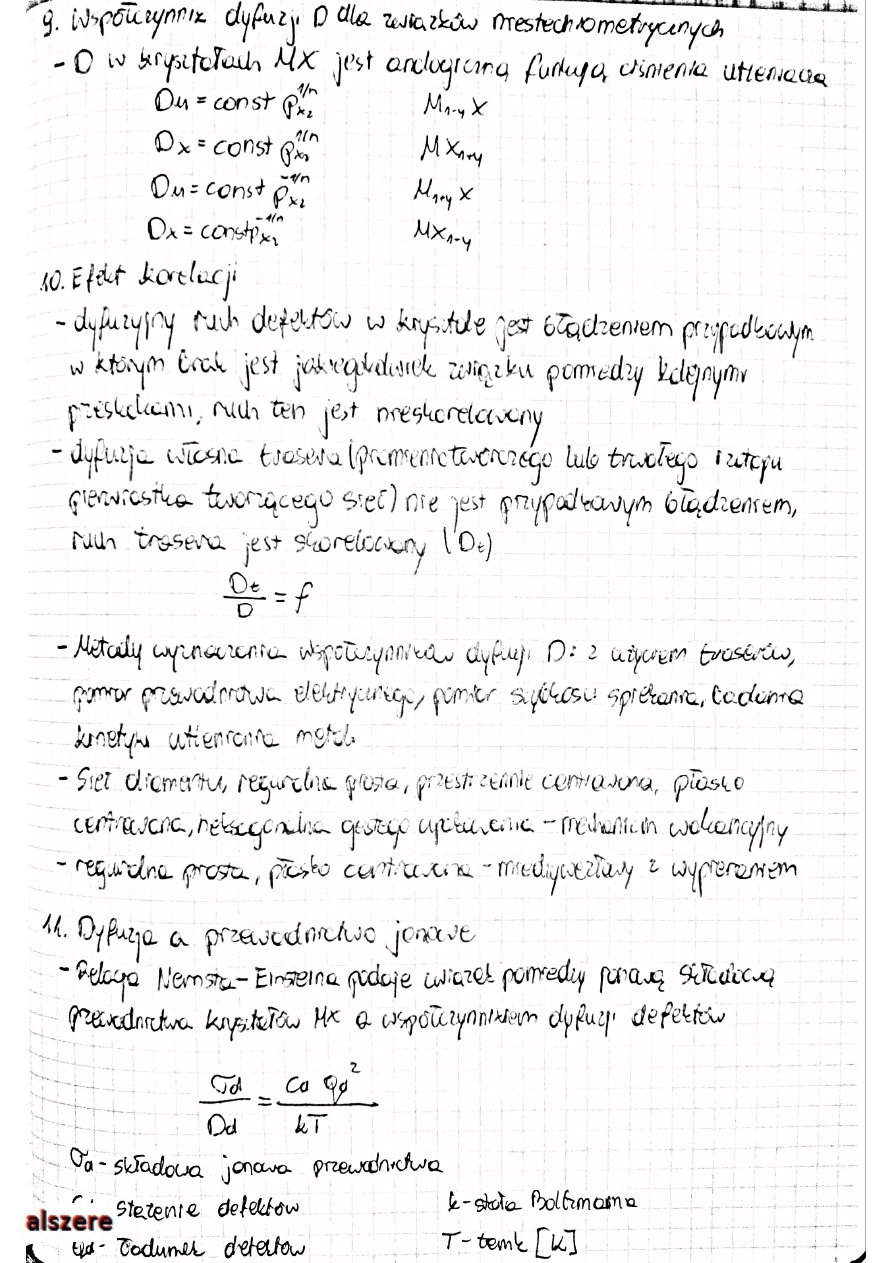 9. Współczynnik dyfuzji D dla związków niestechiometrycznych
- D w kryształach MX jest analogiczną funkcją ciśnienia utleniacza
D_M = const p_{x2}^{1/n} M_{1-y}X
D_x = const p_{x2}^{1/n} MX_{1+y}
D_M = const p_{x2}^{-1/n} M_{1+y}X
D_x = const p_{x2}^{-1/n} MX_{1-y}
10. Efekt korelacji
- dyfuzyjny ruch defektów w krysztale jest błądzeniem przypadkowym
w którym brak jest jakiegokolwiek związku pomiędzy kolejnymi
przeskokami, ruch ten jest nieskorelowany
- dyfuzja własna trasera (promieniotwórczego lub trwałego izotopu
pierwiastka tworzącego sieć) nie jest przypadkowym błądzeniem,
ruch trasera jest skorelowany (D_t)
D_t / D = f
- Metody wyznaczania współczynników dyfuzji D: z użyciem traserów,
pomiar przewodnictwa elektrycznego, pomiar szybkości spiekania, badania
kinetyki utleniania metali
- Sieć diamentu, regularna prosta, przestrzennie centrowana, płasko
centrowana, heksagonalna gęstego upakowania - mechanizm wakancyjny
- regularna prosta, płasko centrowana - międzywęzłowy z wypieraniem
11. Dyfuzja a przewodnictwo jonowe
- Relacja Nernsta-Einsteina podaje związek pomiędzy jonową składową
przewodnictwa kryształów MX a współczynnikiem dyfuzji defektów
σd / Dd = Cd qd² / kT
σd - składowa jonowa przewodnictwa
stężenie defektów k - stała Boltzmanna
alszere
qd - ładunek defektów T - temp [K]